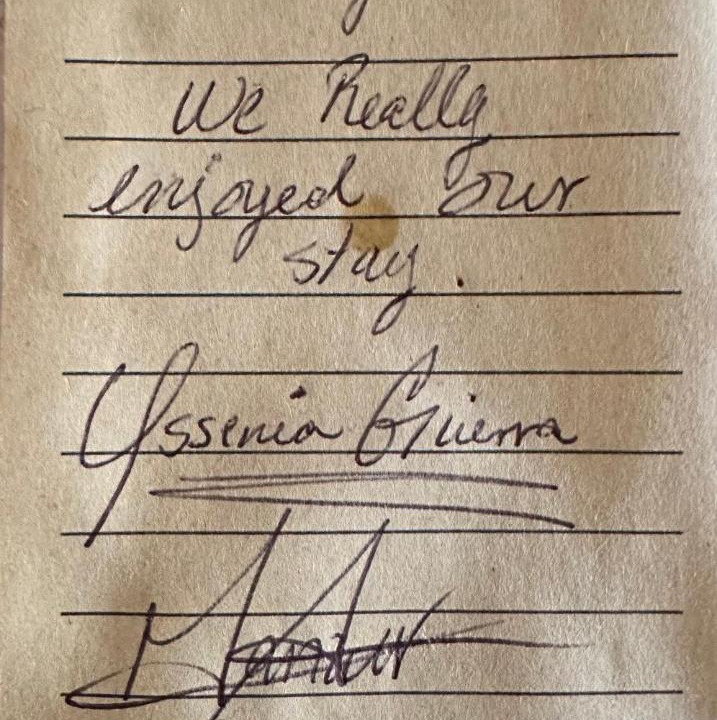 We Really
enjoyed our
stay.
Yssenia Guerra